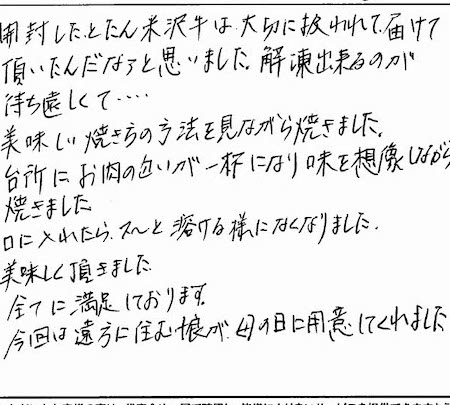 開封したとたん米沢牛は大切に扱われて届けて
頂いたんだなぁと思いました。解凍出来るのが
待ち遠しくて・・・・
美味しい焼き方の方法を見ながら焼きました。
台所にお肉の匂いが一杯になり味を想像しながら
焼きました
口に入れたら、スーと溶ける様になくなりました。
美味しく頂きました。
全てに満足しております。
今回は遠方に住む娘が、母の日に用意してくれました